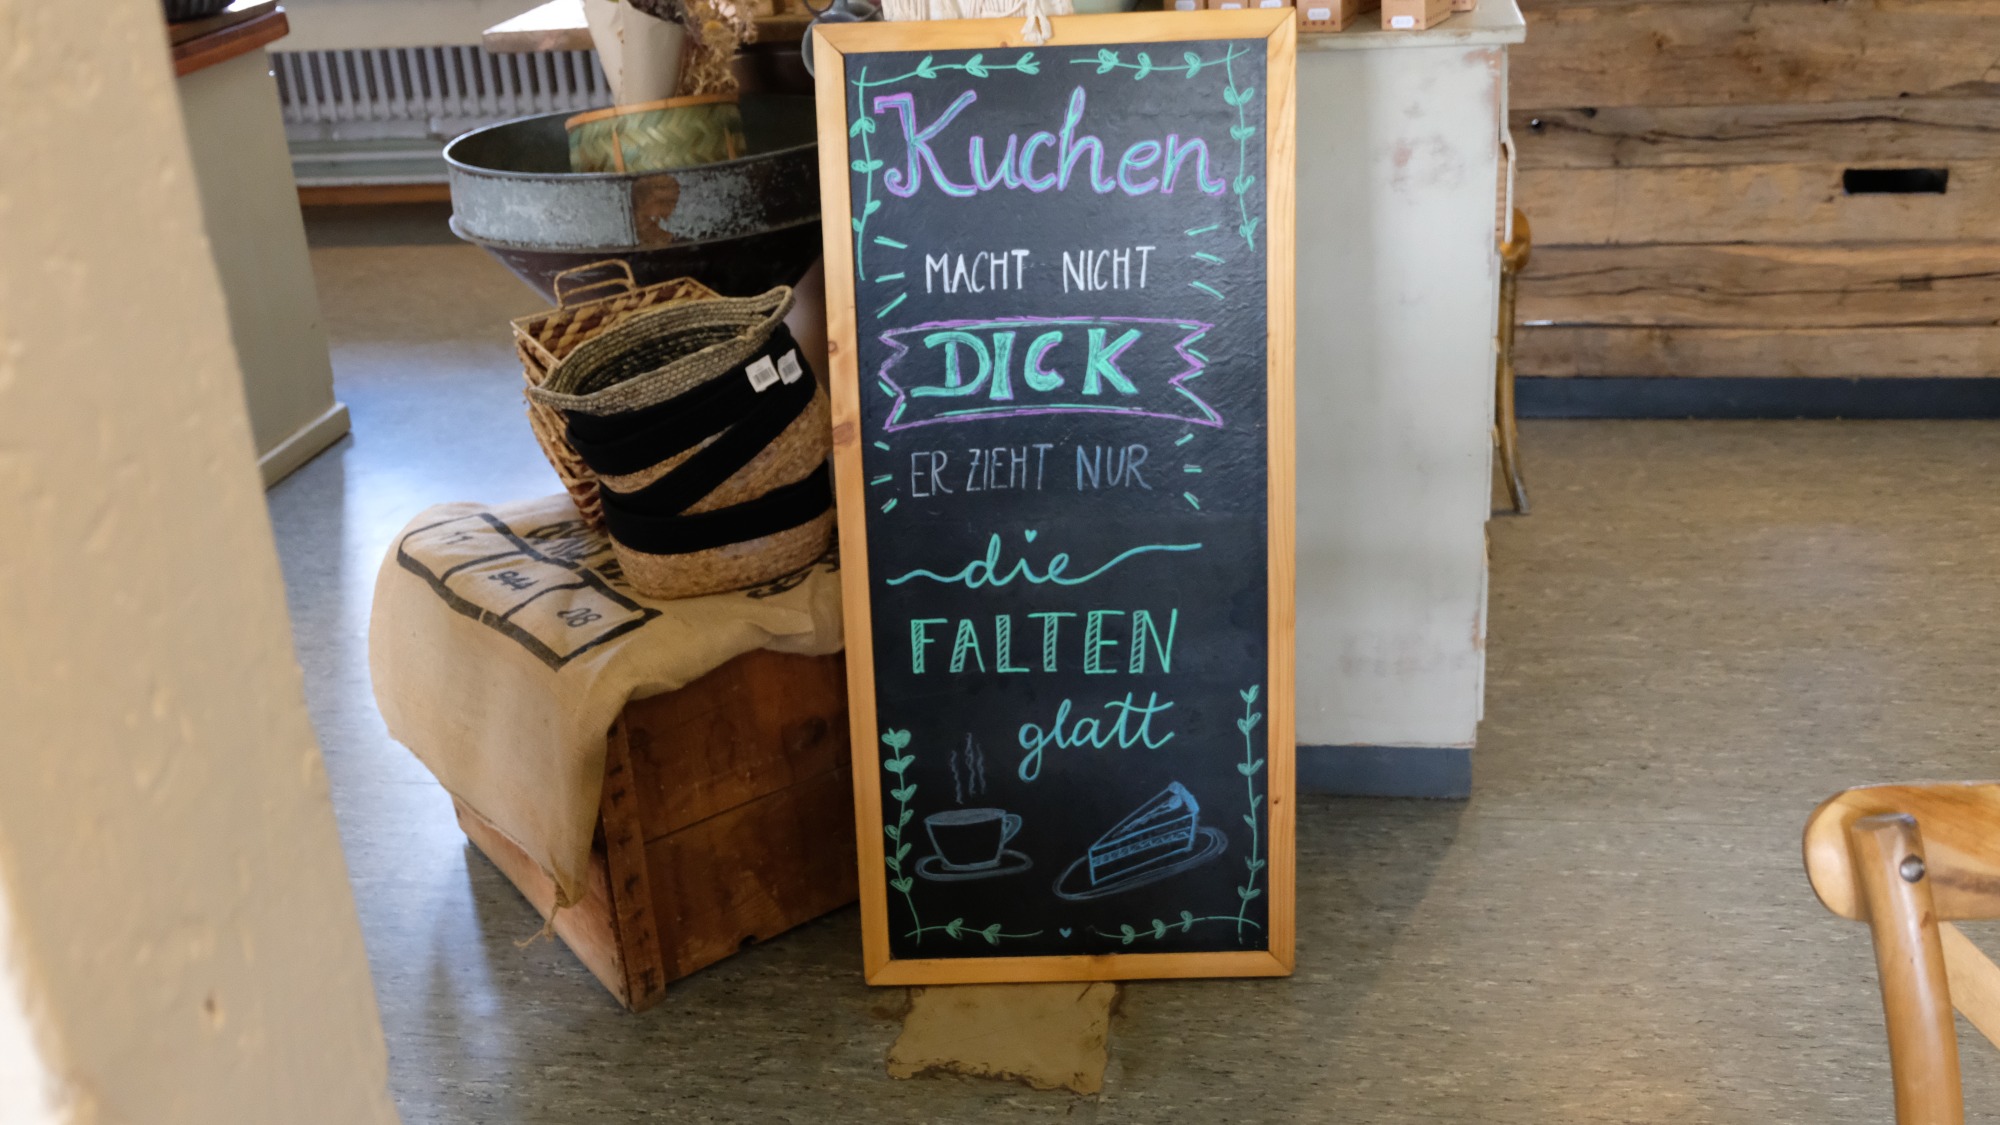 Kuchen
MACHT NICHT
DICK
ER ZIEHT NUR
die
FALTEN
glatt
28